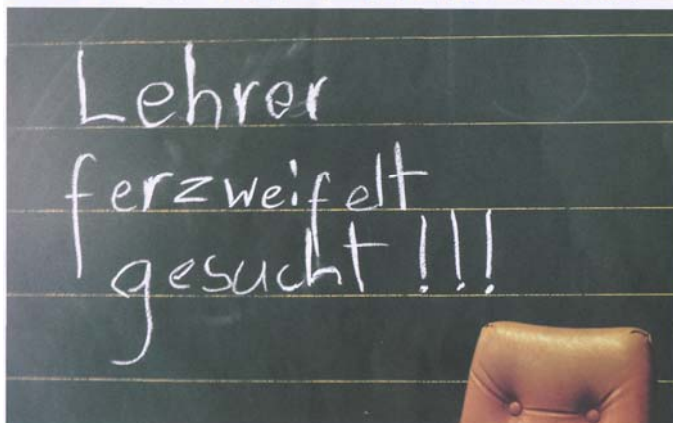 Lehrer
ferzweifelt
gesucht!!!